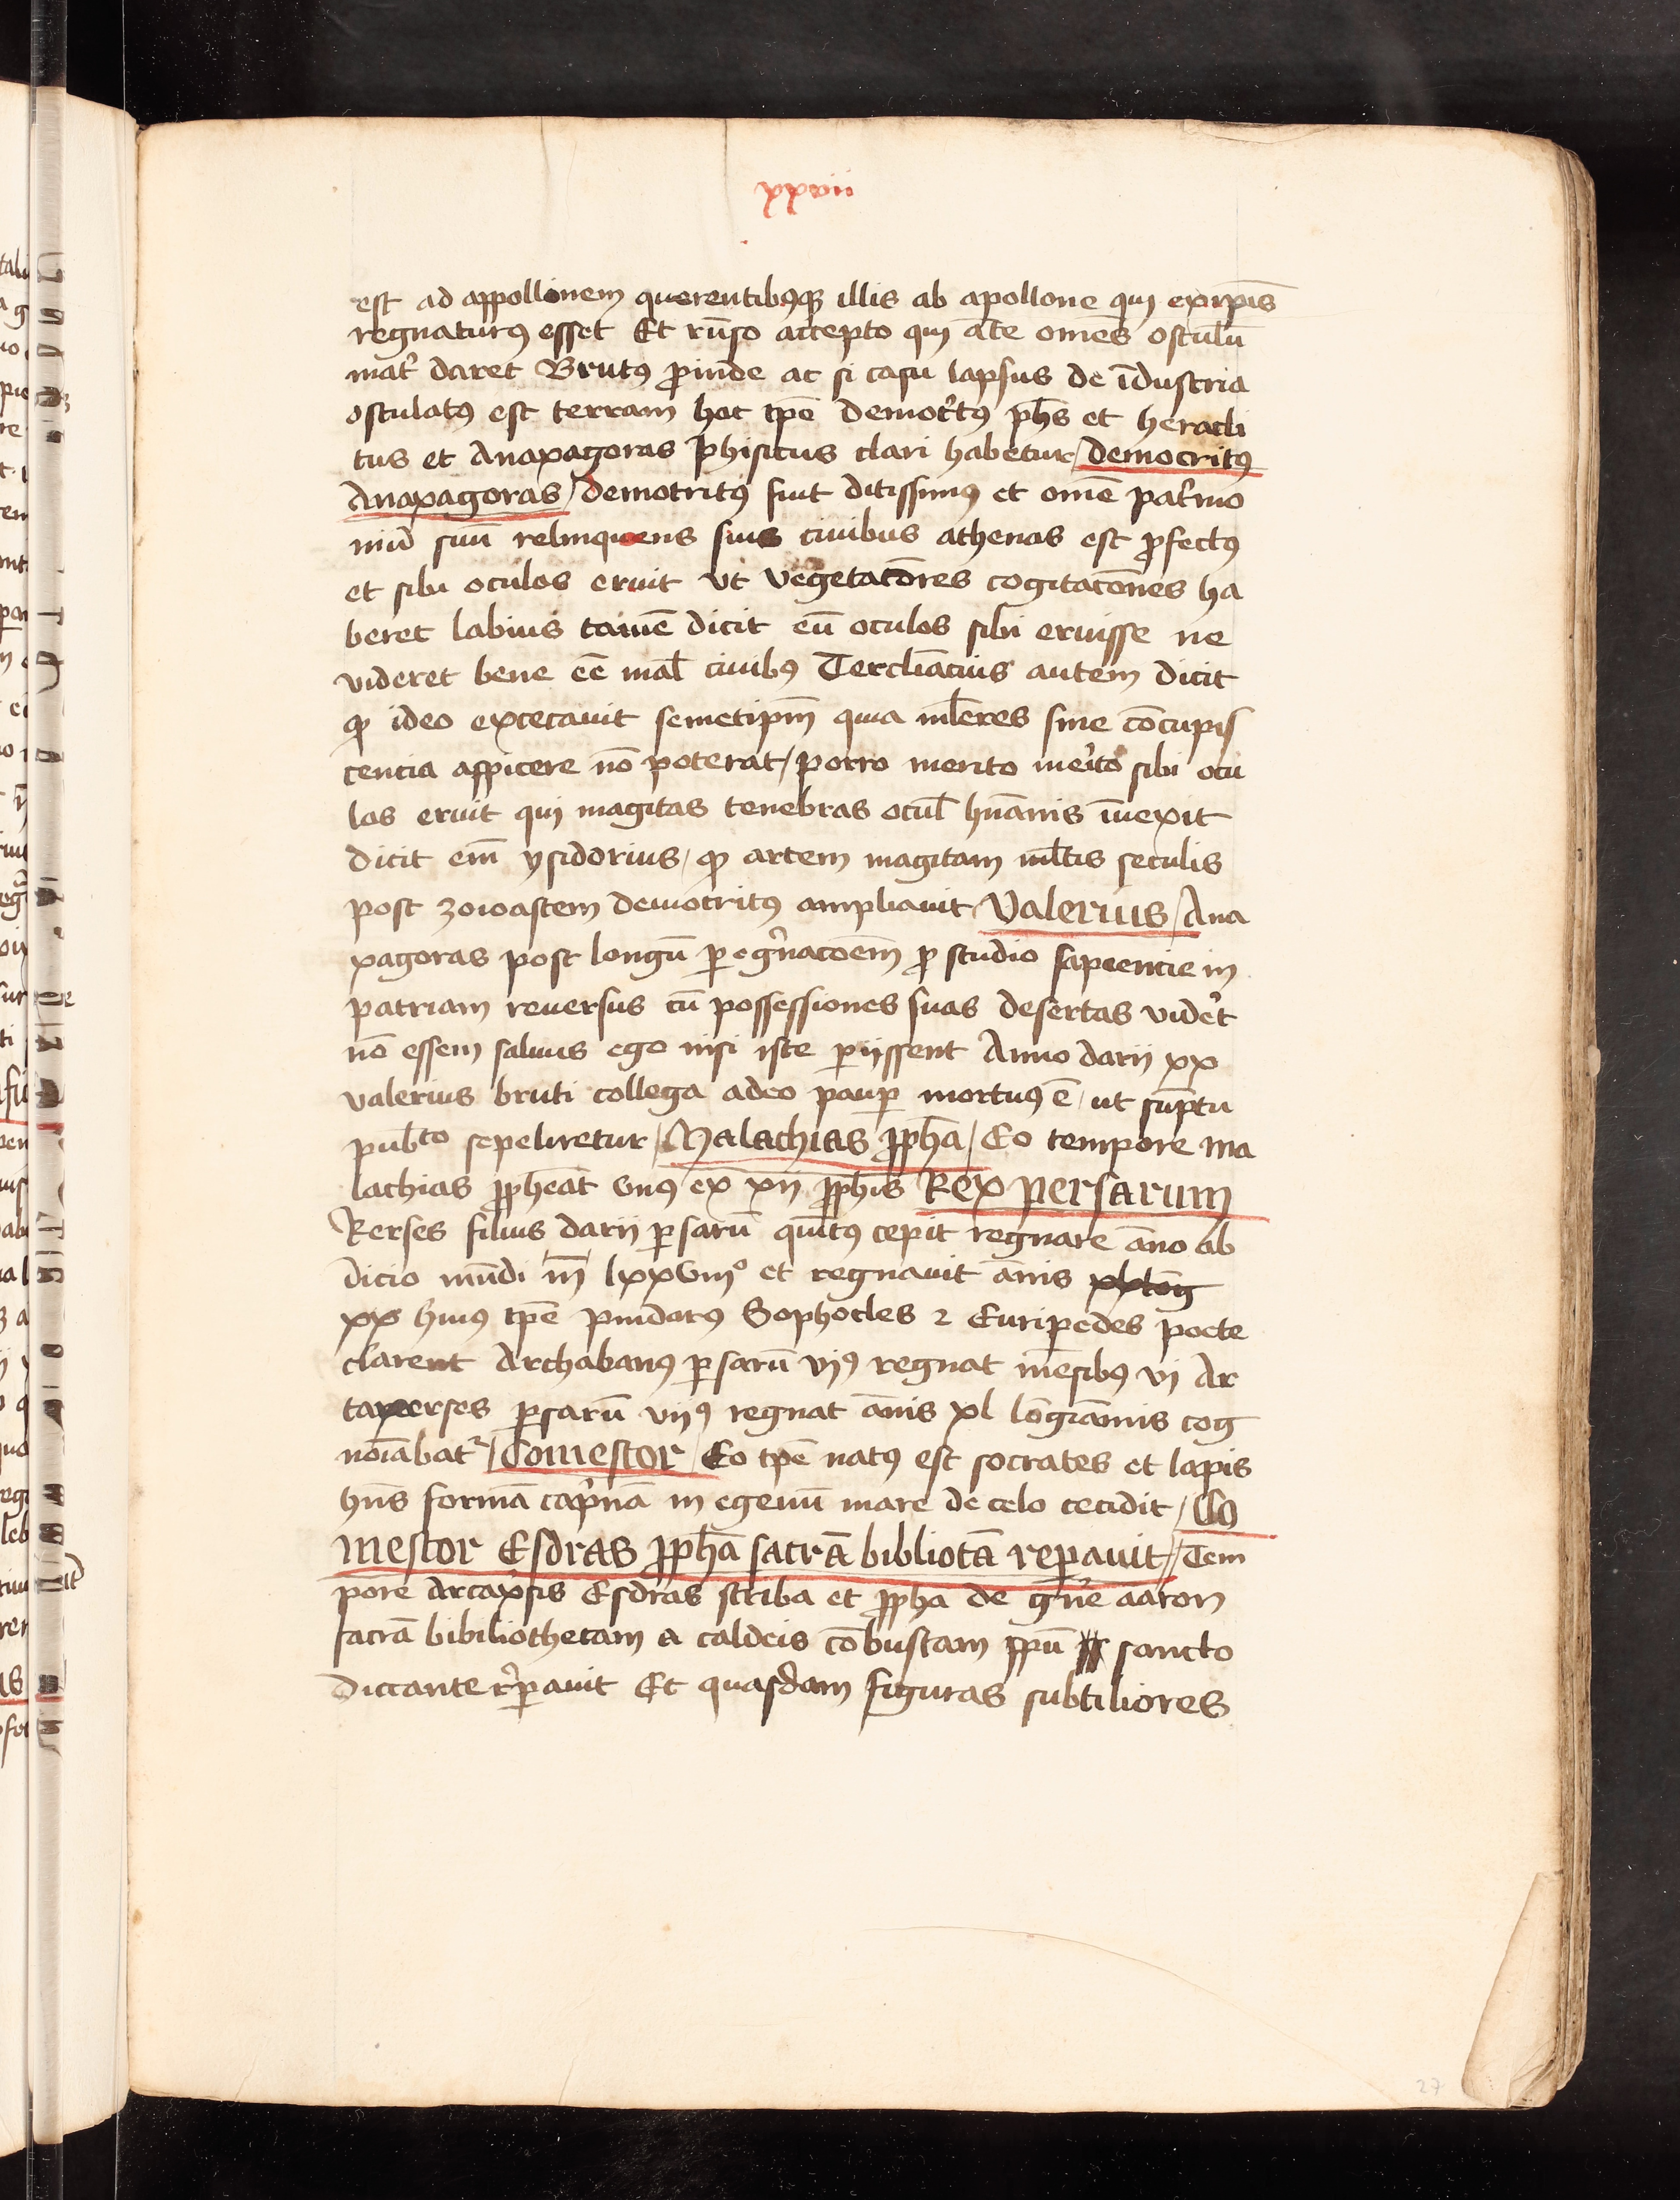 xxvii
est ad appollinem querentibꝰqꝫ illis ab apollone qui ex ip̄is
regnaturꝰ esset Et rūso accepto qui āte om̄es osculū
mat̉ daret Brutꝰ ꝓinde ac si casu lapsus de īdustria
osculatꝰ est terram hoc tp̄e democ̉tꝰ ph̄s et heracli
tus et Anaxagoras phisicus clari habetur / democritꝰ
Anaxagoras / democritꝰ fuit ditissimꝰ et om̄e pat̉mo
niū suū relinquens suis ciuibus athenas est ꝓfectꝰ
et sibi oculos eruit vt vegetatōres cogitatōnes ha
beret labius tamē dicit eū oculos sibi eruisse ne
videret bene eē mal̄ ciuibꝰ Tercliacius autem dicit
ꝙ ideo excecauit semetipm̄ quia ml̄eres sine cōcupis
cencia aspicere nō poterat / porro merito me̓ito sibi ocu
los eruit qui magicas tenebras ocul̄ hūanis īuexit
dicit em̄ ysidorius / ꝙ artem magicam ml̄tis seculis
post zoroastem democritꝰ ampliauit Valerius / Ana
xagoras post longū ꝑeg̓natōem̄ ꝓ studio sapiencie in
patriam reuersus cū possessiones suas desertas vide̓t
nō essem saluus ego nisi iste ꝑijssent Anno darij xx
valerius bruti collega adeo pauꝑ mortuꝰ ē / ut sūptu
pub̄co sepeliretur / Malachias ꝓph̄a / Eo tempore ma
lachias ꝓphēat vnꝰ ex xij ꝓph̄is Rex persarum
Xerses filius darij ꝑsarū quītꝰ cepit regnare āno ab
dicio mūdi m̄ lxxviii° et regnauit ānis
xx hꝰiꝰ tp̄e pindarꝰ Sophocles ⁊ Euripedes poete
clarent Archabanꝰ ꝑsarū vjꝰ regnat mēsibꝰ vj Ar
taxerses ꝑsarū vijꝰ regnat ānis xl lōgīanus cog
noīabatr / Comestor / Eo tp̄e natꝰ est socrates et lapis
hn̄s formā cap̉nā in egeuū mare de celo cecidit / Co
mestor Esdras ꝓph̄a sacrā bibliotā reꝑauit / Tem
pore Arcaxsis Esdras scriba et ꝓpha de gn̄e aaron
sacrā bibiliothecam a caldeis cōbustam spū sancto
dictante r̓ꝑauit Et quasdam figuras subtiliores
27